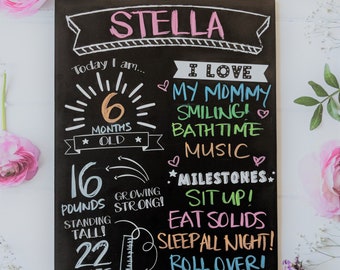 STELLA
Today I am...
6
MONTHS
OLD
16
POUNDS
GROWING
STRONG!
STANDING
TALL!
22
I LOVE
MY MOMMY
SMILING!
BATHTIME
MUSIC
MILESTONES
SIT UP!
EAT SOLIDS
SLEEP ALL NIGHT!
ROLL OVER!